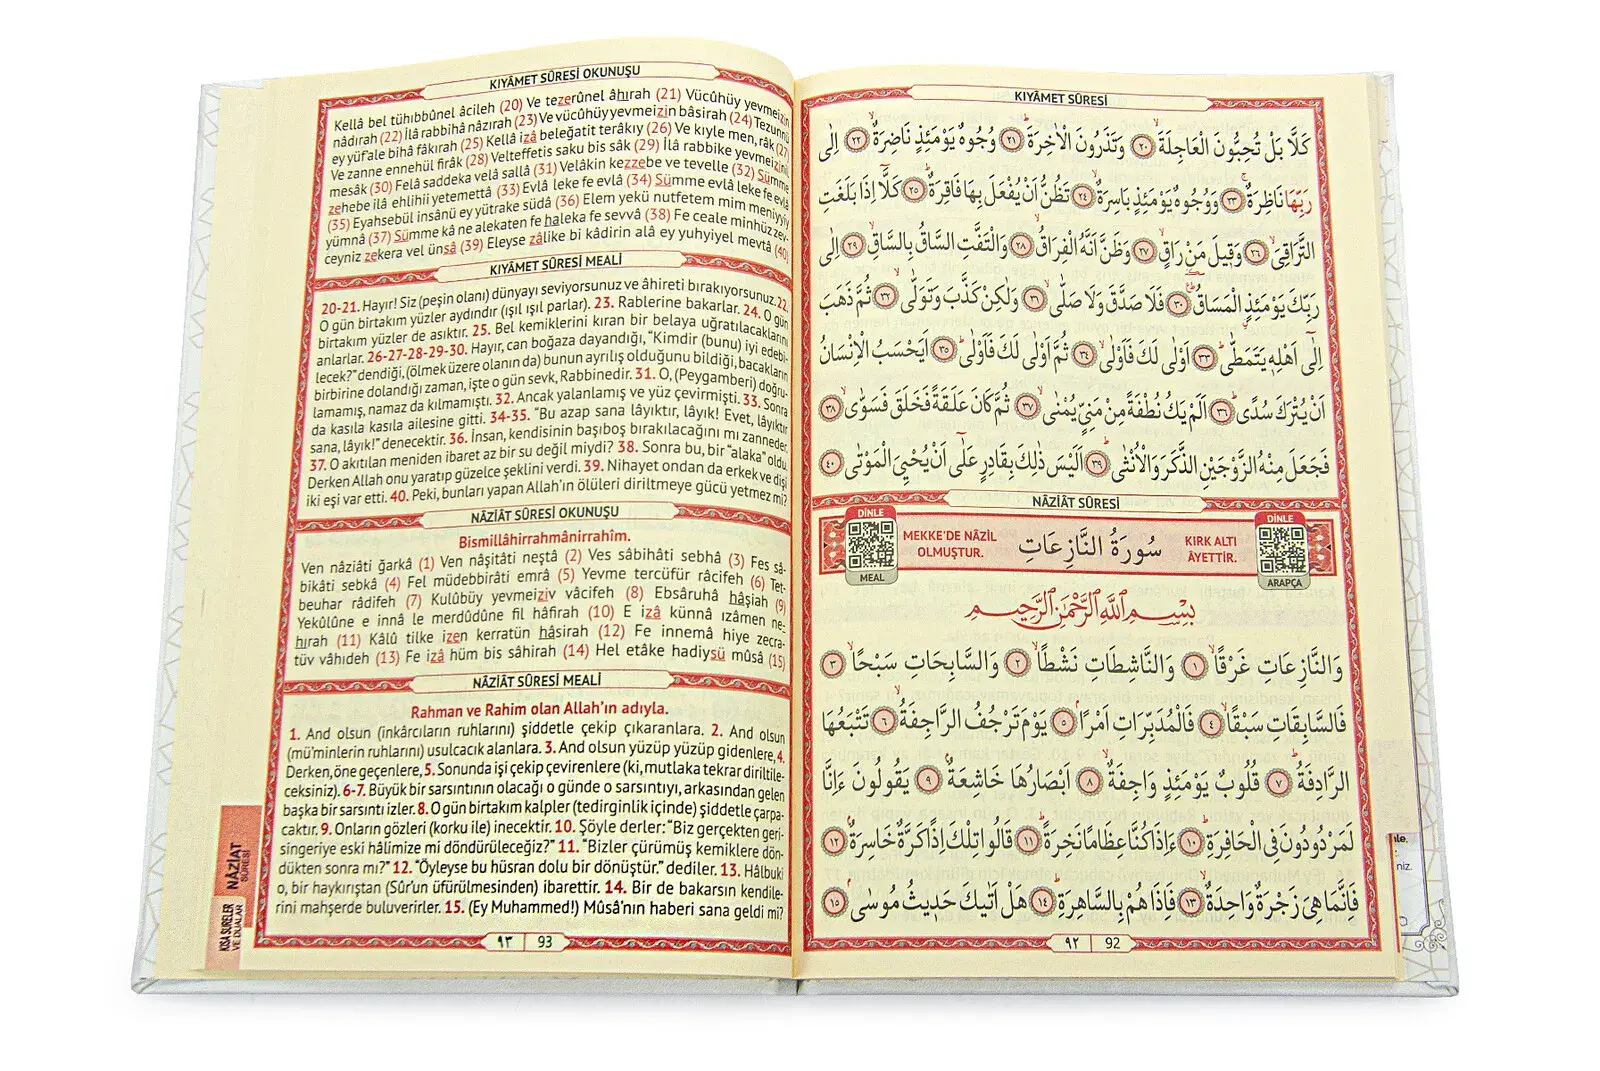 KIYÂMET SÛRESİ
كَلَّا بَلْ تُحِبُّونَ الْعَاجِلَةَۙ ﴿٢٠﴾ وَتَذَرُونَ الْاٰخِرَةَۜ ﴿٢١﴾ وُجُوهٌ يَوْمَئِذٍ نَاضِرَةٌۙ ﴿٢٢﴾ اِلٰى
رَبِّهَا نَاظِرَةٌۚ ﴿٢٣﴾ وَوُجُوهٌ يَوْمَئِذٍ بَاسِرَةٌۙ ﴿٢٤﴾ تَظُنُّ اَنْ يُفْعَلَ بِهَا فَاقِرَةٌۜ ﴿٢٥﴾ كَلَّٓا اِذَا بَلَغَتِ
التَّرَاقِيَۙ ﴿٢٦﴾ وَقٖيلَ مَنْ رَاقٍۙ ﴿٢٧﴾ وَظَنَّ اَنَّهُ الْفِرَاقُۙ ﴿٢٨﴾ وَالْتَفَّتِ السَّاقُ بِالسَّاقِۙ ﴿٢٩﴾ اِلٰى
رَبِّكَ يَوْمَئِذٍ الْمَسَاقُۜ ﴿٣٠﴾ فَلَا صَدَّقَ وَلَا صَلّٰىۙ ﴿٣١﴾ وَلٰكِنْ كَذَّبَ وَتَوَلّٰىۙ ﴿٣٢﴾ ثُمَّ ذَهَبَ
اِلٰٓى اَهْلِهٖ يَتَمَطّٰىۜ ﴿٣٣﴾ اَوْلٰى لَكَ فَاَوْلٰىۙ ﴿٣٤﴾ ثُمَّ اَوْلٰى لَكَ فَاَوْلٰىۜ ﴿٣٥﴾ اَيَحْسَبُ الْاِنْسَانُ
اَنْ يُتْرَكَ سُدًىۜ ﴿٣٦﴾ اَلَمْ يَكُ نُطْفَةً مِنْ مَنِيٍّ يُمْنٰىۙ ﴿٣٧﴾ ثُمَّ كَانَ عَلَقَةً فَخَلَقَ فَسَوّٰىۙ ﴿٣٨﴾
فَجَعَلَ مِنْهُ الزَّوْجَيْنِ الذَّكَرَ وَالْاُنْثٰىۜ ﴿٣٩﴾ اَلَيْسَ ذٰلِكَ بِقَادِرٍ عَلٰٓى اَنْ يُحْيِيَ الْمَوْتٰى ﴿٤٠﴾
NÂZİÂT SÛRESİ
DİNLE
ARAPÇA
KIRK ALTI
ÂYETTİR.
سُورَةُ النَّازِعَاتِ
MEKKE'DE NÂZİL
OLMUŞTUR.
DİNLE
MEAL
بِسْمِ اللّٰهِ الرَّحْمٰنِ الرَّحٖيمِ
وَالنَّازِعَاتِ غَرْقًاۙ ﴿١﴾ وَالنَّاشِطَاتِ نَشْطًاۙ ﴿٢﴾ وَالسَّابِحَاتِ سَبْحًاۙ ﴿٣﴾
فَالسَّابِقَاتِ سَبْقًاۙ ﴿٤﴾ فَالْمُدَبِّرَاتِ اَمْرًاۢ ﴿٥﴾ يَوْمَ تَرْجُفُ الرَّاجِفَةُۙ ﴿٦﴾ تَتْبَعُهَا
الرَّادِفَةُۜ ﴿٧﴾ قُلُوبٌ يَوْمَئِذٍ وَاجِفَةٌۙ ﴿٨﴾ اَبْصَارُهَا خَاشِعَةٌۢ ﴿٩﴾ يَقُولُونَ ءَاِنَّا
لَمَرْدُودُونَ فِي الْحَافِرَةِۜ ﴿١٠﴾ ءَاِذَا كُنَّا عِظَامًا نَخِرَةًۜ ﴿١١﴾ قَالُوا تِلْكَ اِذًا كَرَّةٌ خَاسِرَةٌۢ ﴿١٢﴾
فَاِنَّمَا هِيَ زَجْرَةٌ وَاحِدَةٌۙ ﴿١٣﴾ فَاِذَا هُمْ بِالسَّاهِرَةِۜ ﴿١٤﴾ هَلْ اَتٰيكَ حَدٖيثُ مُوسٰىۢ ﴿١٥﴾
٩٢ 92
KIYÂMET SÛRESİ OKUNUŞU
Kellâ bel tühıbbûnel âcileh (20) Ve tezerûnel âhırah (21) Vücûhüy yevmeizin
nâdırah (22) İlâ rabbihâ nâzırah (23) Ve vücûhüy yevmeizin bâsirah (24) Tezunnü
ey yüf'ale bihâ fâkırah (25) Kellâ izâ beleğatit terâkıy (26) Ve kıyle men, râk (27)
Ve zanne ennehül firâk (28) Velteffetis saku bis sâk (29) İlâ rabbike yevmeizinil
mesâk (30) Felâ saddeka velâ sallâ (31) Velâkin kezzebe ve tevelle (32) Sümme
zehebe ilâ ehlihii yetemettâ (33) Evlâ leke fe evlâ (34) Sümme evlâ leke fe evlâ
(35) Eyahsebül insânü ey yütrake südâ (36) Elem yekü nutfetem mim meniyyiy
yümnâ (37) Sümme kâne alekaten fe haleka fe sevvâ (38) Fe ceale minhüz zev-
ceyniz zekera vel ünsâ (39) Eleyse zâlike bi kâdirin alâ ey yuhyiyel mevtâ (40)
KIYÂMET SÛRESİ MEALİ
20-21. Hayır! Siz (peşin olanı) dünyayı seviyorsunuz ve âhireti bırakıyorsunuz. 22.
O gün birtakım yüzler aydındır (ışıl ışıl parlar). 23. Rablerine bakarlar. 24. O gün
birtakım yüzler de asıktır. 25. Bel kemiklerini kıran bir belaya uğratılacaklarını
anlarlar. 26-27-28-29-30. Hayır, can boğaza dayandığı, "Kimdir (bunu) iyi edebi-
lecek?" dendiği, (ölmek üzere olanın da) bunun ayrılış olduğunu bildiği, bacakların
birbirine dolandığı zaman, işte o gün sevk, Rabbinedir. 31. O, (Peygamberi) doğru-
lamamış, namaz da kılmamıştı. 32. Ancak yalanlamış ve yüz çevirmişti. 33. Sonra
da kasıla kasıla ailesine gitti. 34-35. "Bu azap sana lâyıktır, lâyık! Evet, lâyıktır
sana, lâyık!" denecektir. 36. İnsan, kendisinin başıboş bırakılacağını mı zanneder.
37. O akıtılan meniden ibaret az bir su değil miydi? 38. Sonra bu, bir "alaka" oldu.
Derken Allah onu yaratıp güzelce şeklini verdi. 39. Nihayet ondan da erkek ve dişi
iki eşi var etti. 40. Peki, bunları yapan Allah'ın ölüleri diriltmeye gücü yetmez mi?
NÂZİÂT SÛRESİ OKUNUŞU
Bismillâhirrahmânirrahîm.
Ven nâziâti ğarkâ (1) Ven nâşitâti neştâ (2) Ves sâbihâti sebhâ (3) Fes sâ-
bikâti sebkâ (4) Fel müdebbirâti emrâ (5) Yevme tercüfür râcifeh (6) Tet-
beuhar râdifeh (7) Kulûbüy yevmeiziv vâcifeh (8) Ebsâruhâ hâşiah (9)
Yekûlûne e innâ le merdûdûne fil hâfirah (10) E izâ künnâ ızâmen ne-
hırah (11) Kâlû tilke izen kerratün hâsirah (12) Fe innemâ hiye zecra-
tüv vâhıdeh (13) Fe izâ hüm bis sâhirah (14) Hel etâke hadiysü mûsâ (15)
NÂZİÂT SÛRESİ MEALİ
Rahman ve Rahim olan Allah'ın adıyla.
1. And olsun (inkârcıların ruhlarını) şiddetle çekip çıkaranlara. 2. And olsun
(mü'minlerin ruhlarını) usulcacık alanlara. 3. And olsun yüzüp yüzüp gidenlere, 4.
Derken, öne geçenlere, 5. Sonunda işi çekip çevirenlere (ki, mutlaka tekrar diriltile-
ceksiniz). 6-7. Büyük bir sarsıntının olacağı o günde o sarsıntıyı, arkasından gelen
başka bir sarsıntı izler. 8. O gün birtakım kalpler (tedirginlik içinde) şiddetle çarpa-
caktır. 9. Onların gözleri (korku ile) inecektir. 10. Şöyle derler: "Biz gerçekten geri-
singeriye eski hâlimize mi döndürüleceğiz?" 11. "Bizler çürümüş kemiklere dön-
dükten sonra mı?" 12. "Öyleyse bu hüsran dolu bir dönüştür." dediler. 13. Hâlbuki
o, bir haykırıştan (Sûr'un üfürülmesinden) ibarettir. 14. Bir de bakarsın kendile-
rini mahşerde buluverirler. 15. (Ey Muhammed!) Mûsâ'nın haberi sana geldi mi?
٩٣ 93
NÂZİÂT
SÛRESİ
KISA SURELER
VE DUALAR